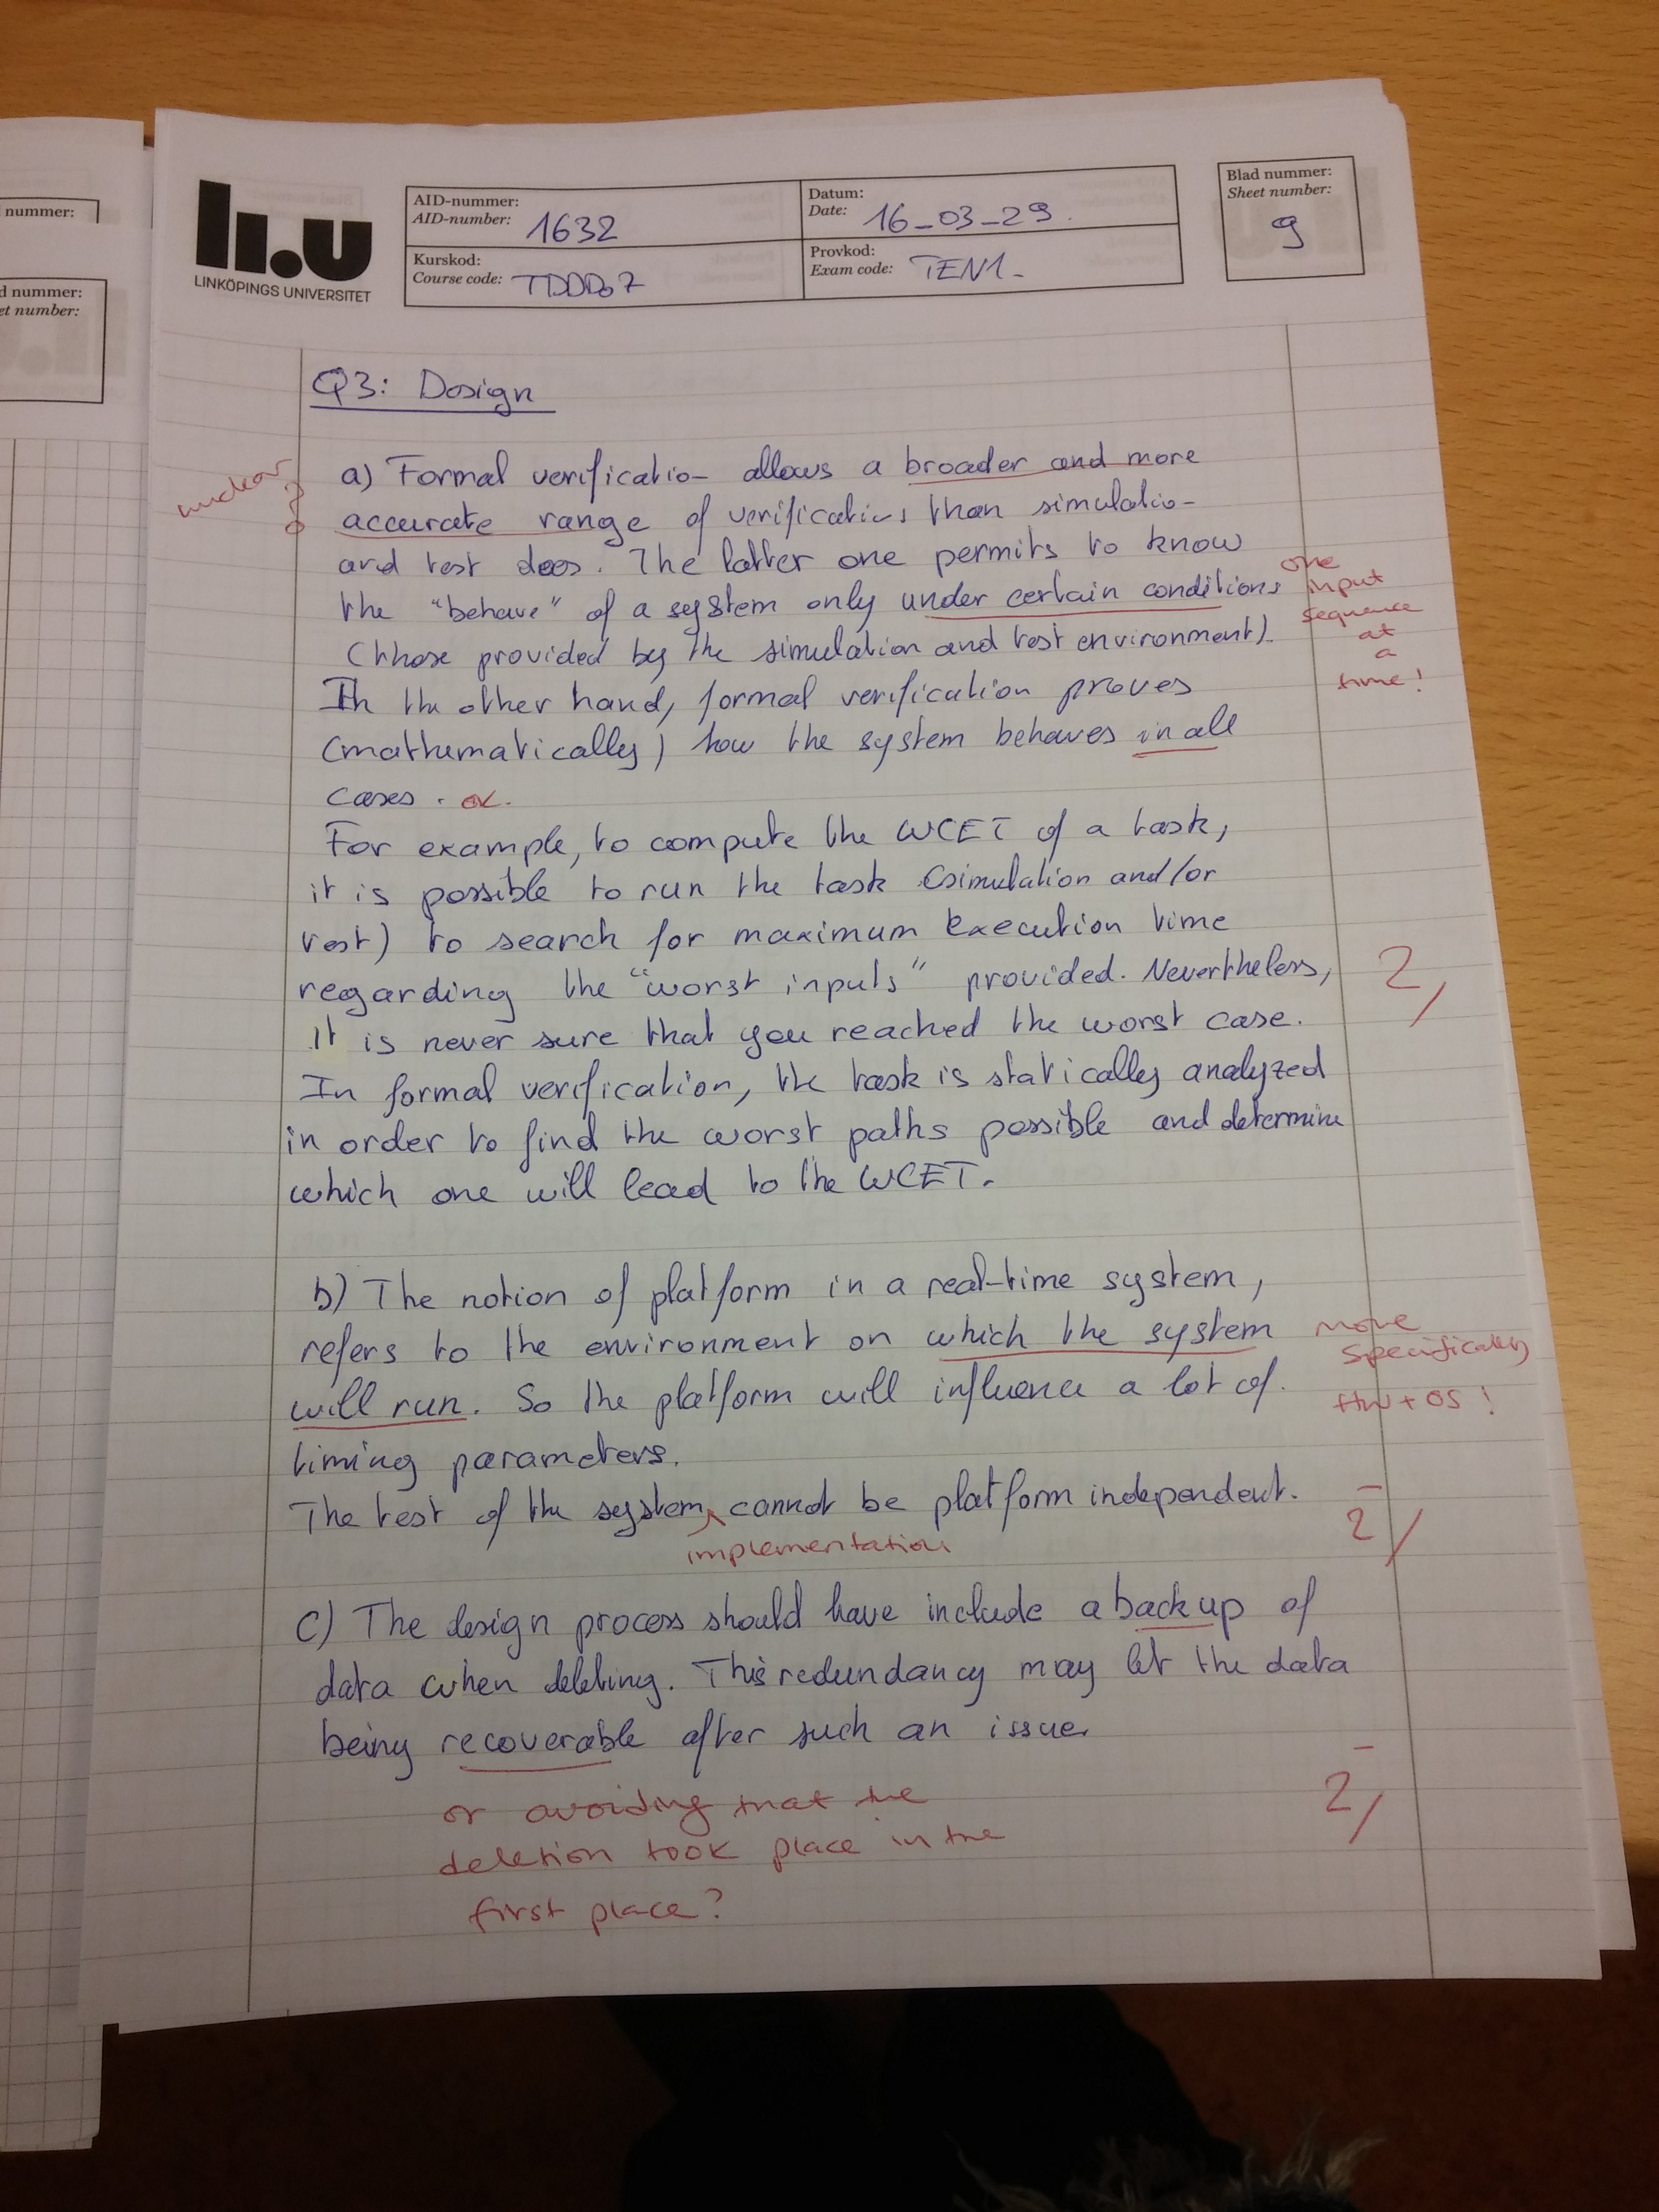 nummer:
d nummer:
et number:
li.u
LINKÖPINGS UNIVERSITET
AID-nummer:
AID-number: 1632
Datum:
Date: 16_03_29.
Kurskod:
Course code: TDDD07
Provkod:
Exam code: TEN1-
Blad nummer:
Sheet number:
9
Q3: Design
unclear
a) Formal verificatio- allows a broader and more
accurate range of verifications than simulatio-
and test does. The latter one permits to know
the "behave" of a system only under certain conditions
one
input
sequence
at
a
time!
(those provided by the simulation and test environment).
In the other hand, formal verification proves
(mathematically) how the system behaves in all
cases. ok.
For example, to compute the WCET of a task,
it is possible to run the task (simulation and/or
test) to search for maximum execution time
regarding the "worst inputs" provided. Nevertheless,
2,
it is never sure that you reached the worst case.
In formal verification, the task is statically analyzed
in order to find the worst paths possible and determine
which one will lead to the WCET.
b) The notion of platform in a real-time system,
refers to the environment on which the system
more
specifically
HW + OS!
will run. So the platform will influence a lot of
timing parameters.
The test of the system cannot be platform independent.
implementation
2/
c) The design process should have include a back up of
data when deleting. This redundancy may let the data
being recoverable after such an issue.
2/
or avoiding that the
deletion took place in the
first place?